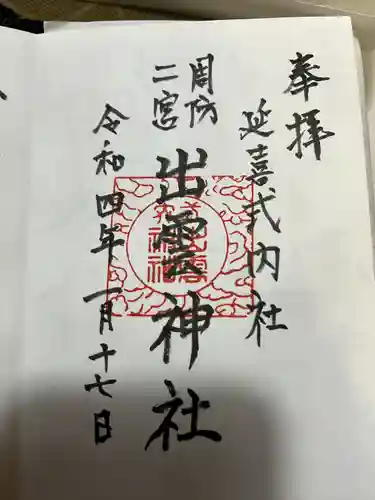 奉拝
延喜式内社
周防
二宮
出雲神社
令和四年一月十七日